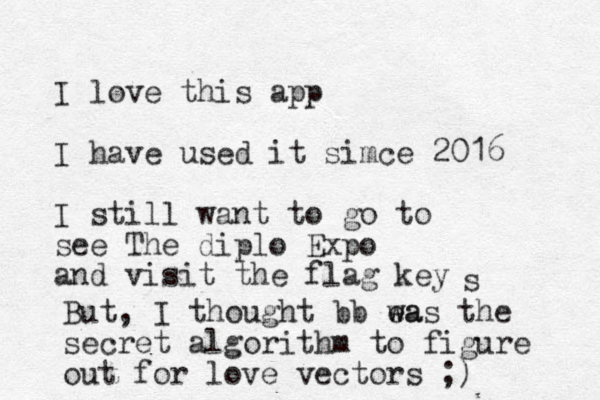 I love this app
I have used it simce 2016
I still want to go to
see The diplo Expo
and visit the flag key s
But, I thought bb was the
secret algorithm to figure
out for love vectors ;)